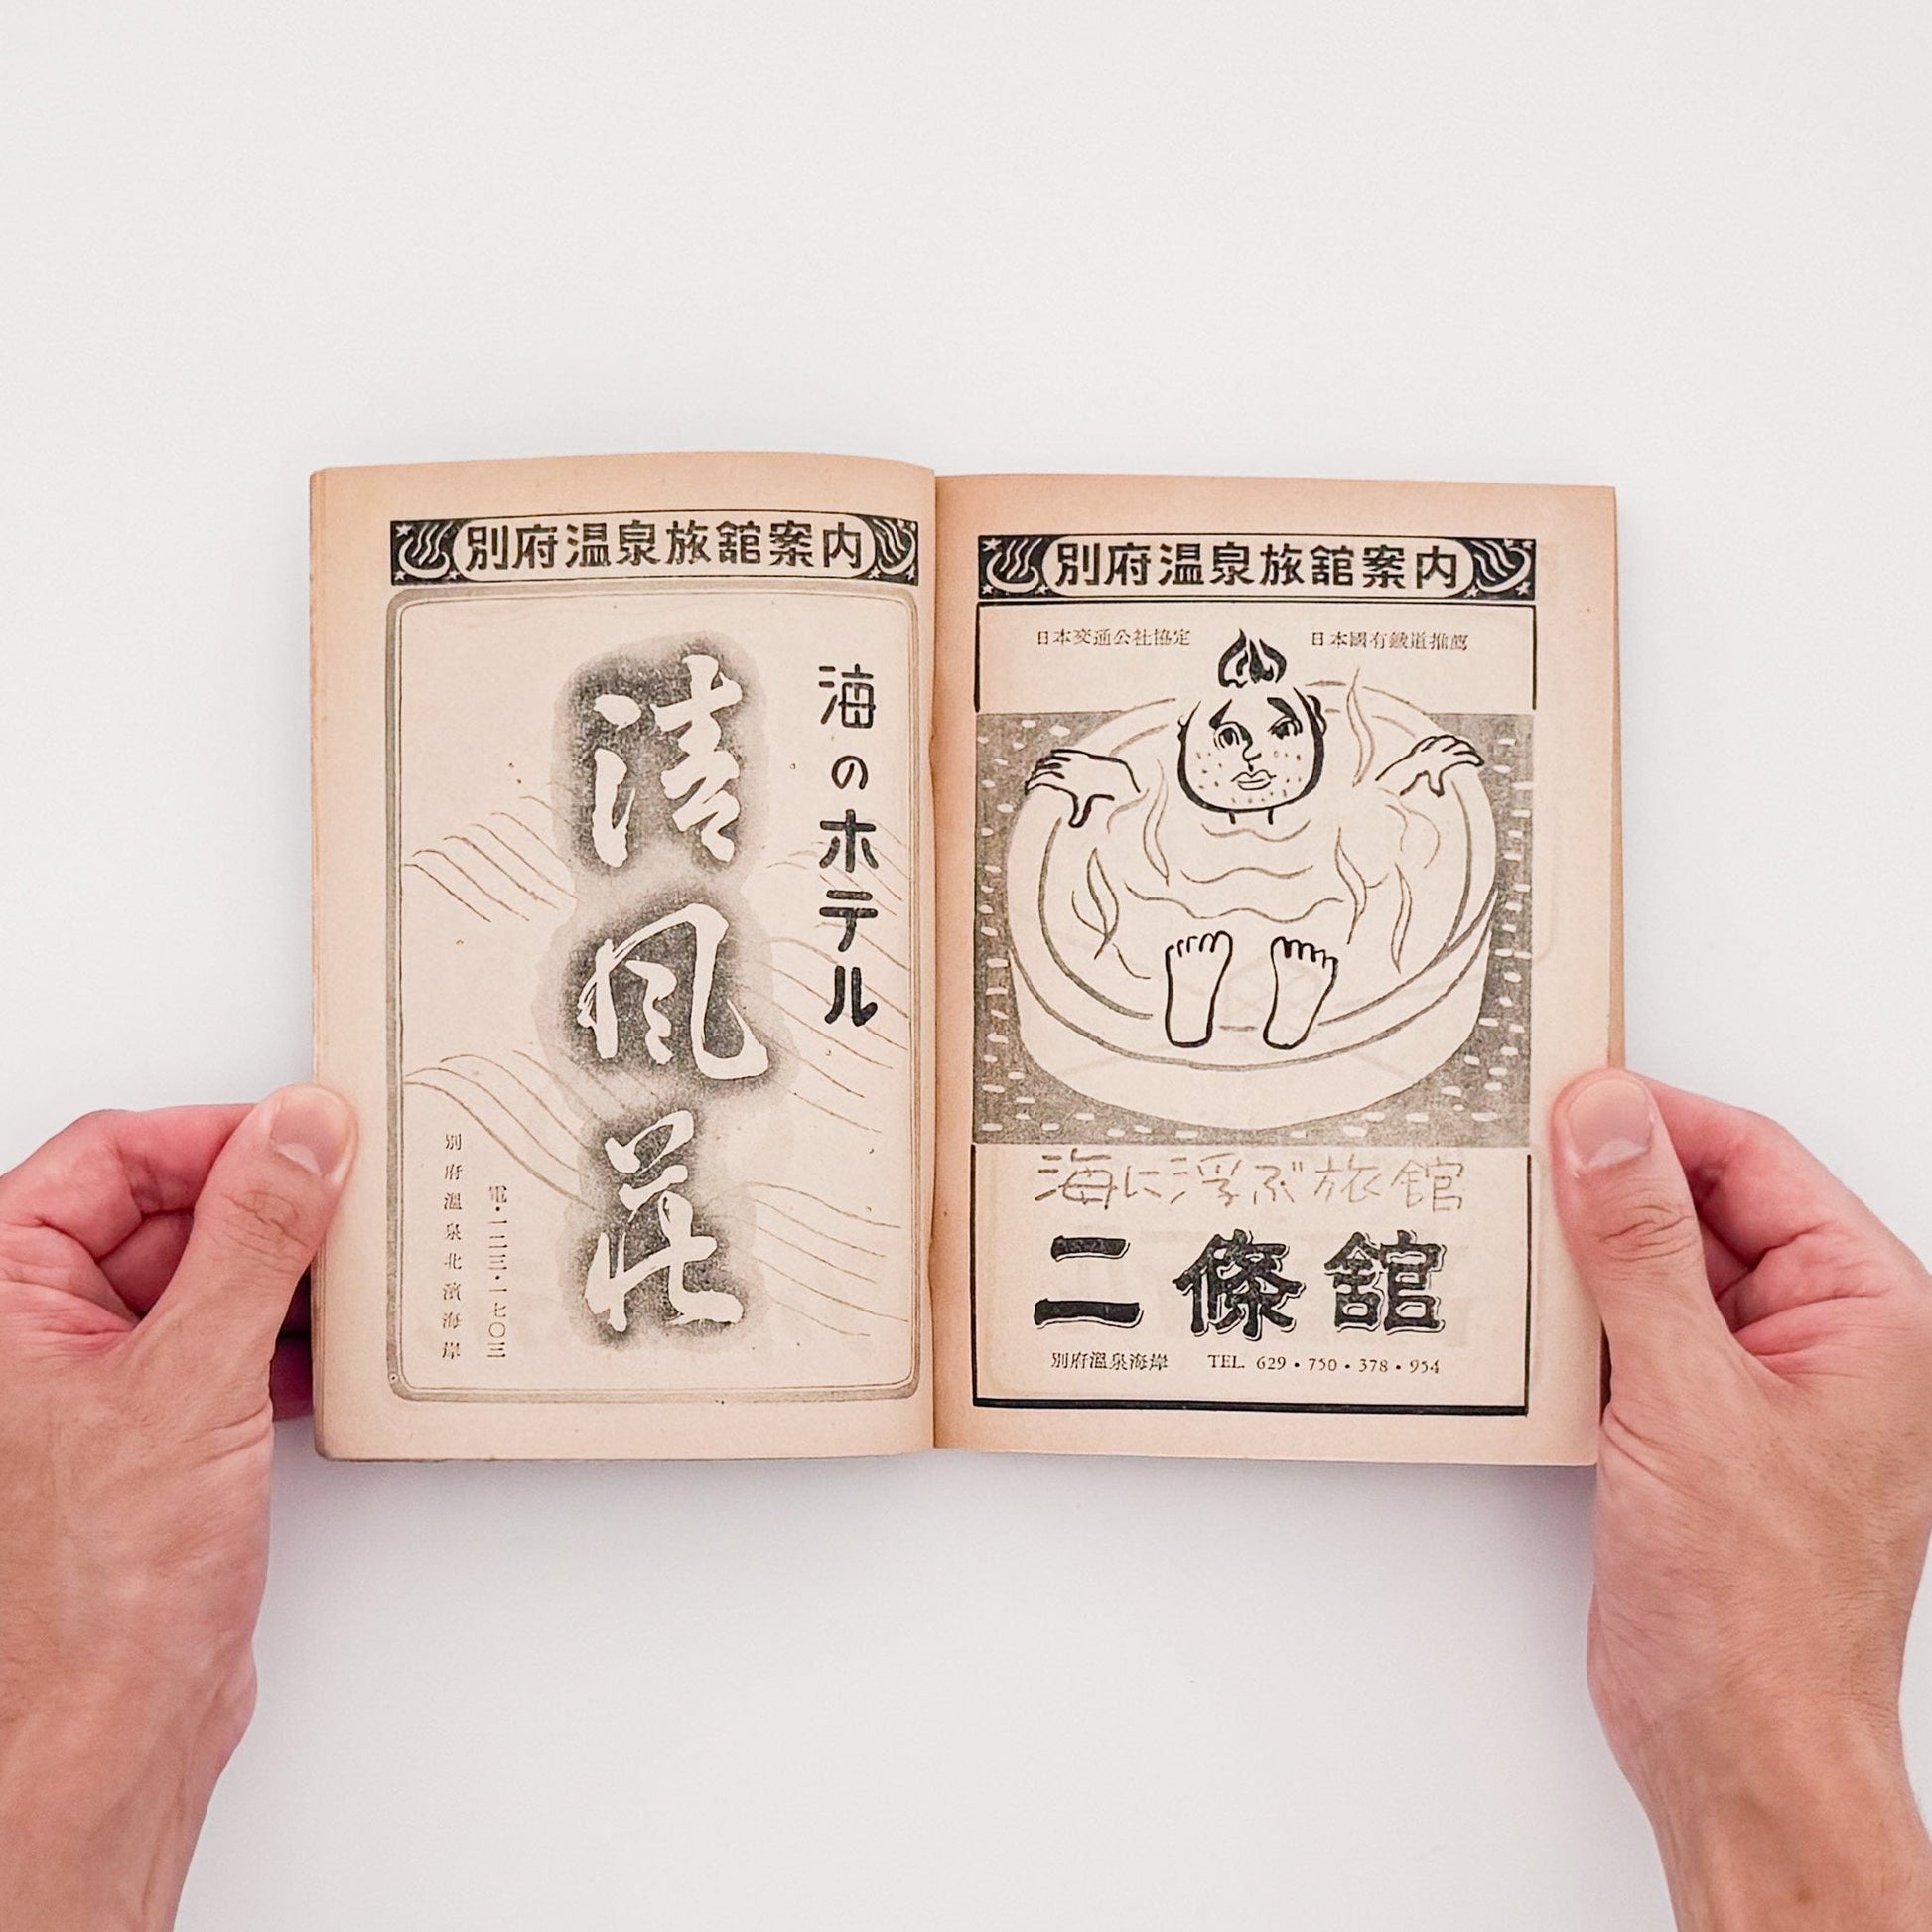 別府温泉旅舘案内
海のホテル
清風荘
電・一二三三・一七〇三
別府溫泉北濱海岸
別府温泉旅舘案内
日本交通公社協定
日本國有鐵道推薦
海に浮ぶ旅館
二條舘
別府溫泉海岸 TEL. 629・750・378・954